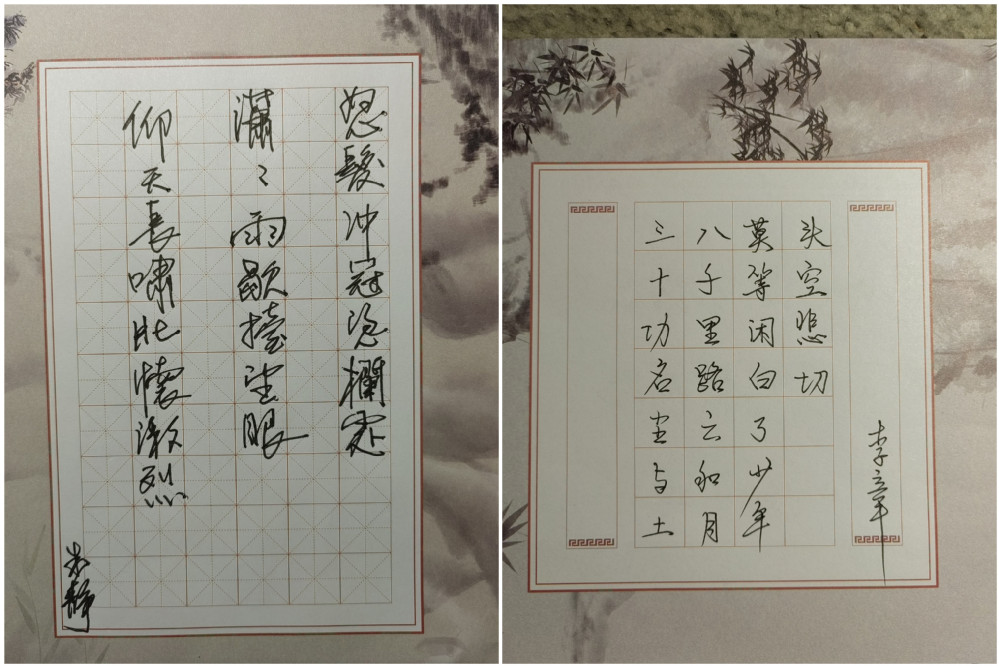 怒髮冲冠凭欄處
瀟々雨歇擡望眼
仰天長嘯壯懷激烈
朱靜
三十功名尘与土
八千里路云和月
莫等闲白了少年
头空悲切
李章